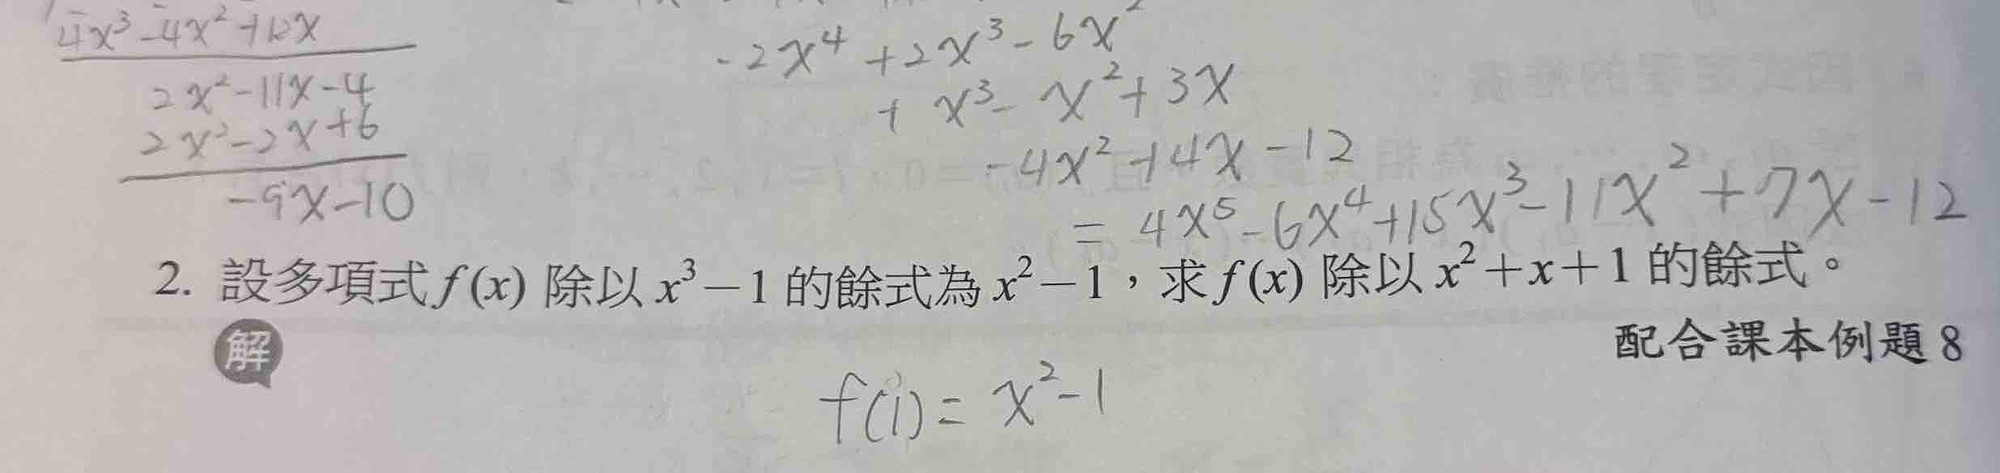 4x³-4x²+12x
2x²-11x-4
2x²-2x+6
-9x-10
-2x⁴+2x³-6x²
+x³-x²+3x
-4x²+4x-12
=4x⁵-6x⁴+15x³-11x²+7x-12
2. 設多項式f(x)除以x³-1的餘式為x²-1，求f(x)除以x²+x+1的餘式。
解
配合課本例題8
f(1)=x²-1